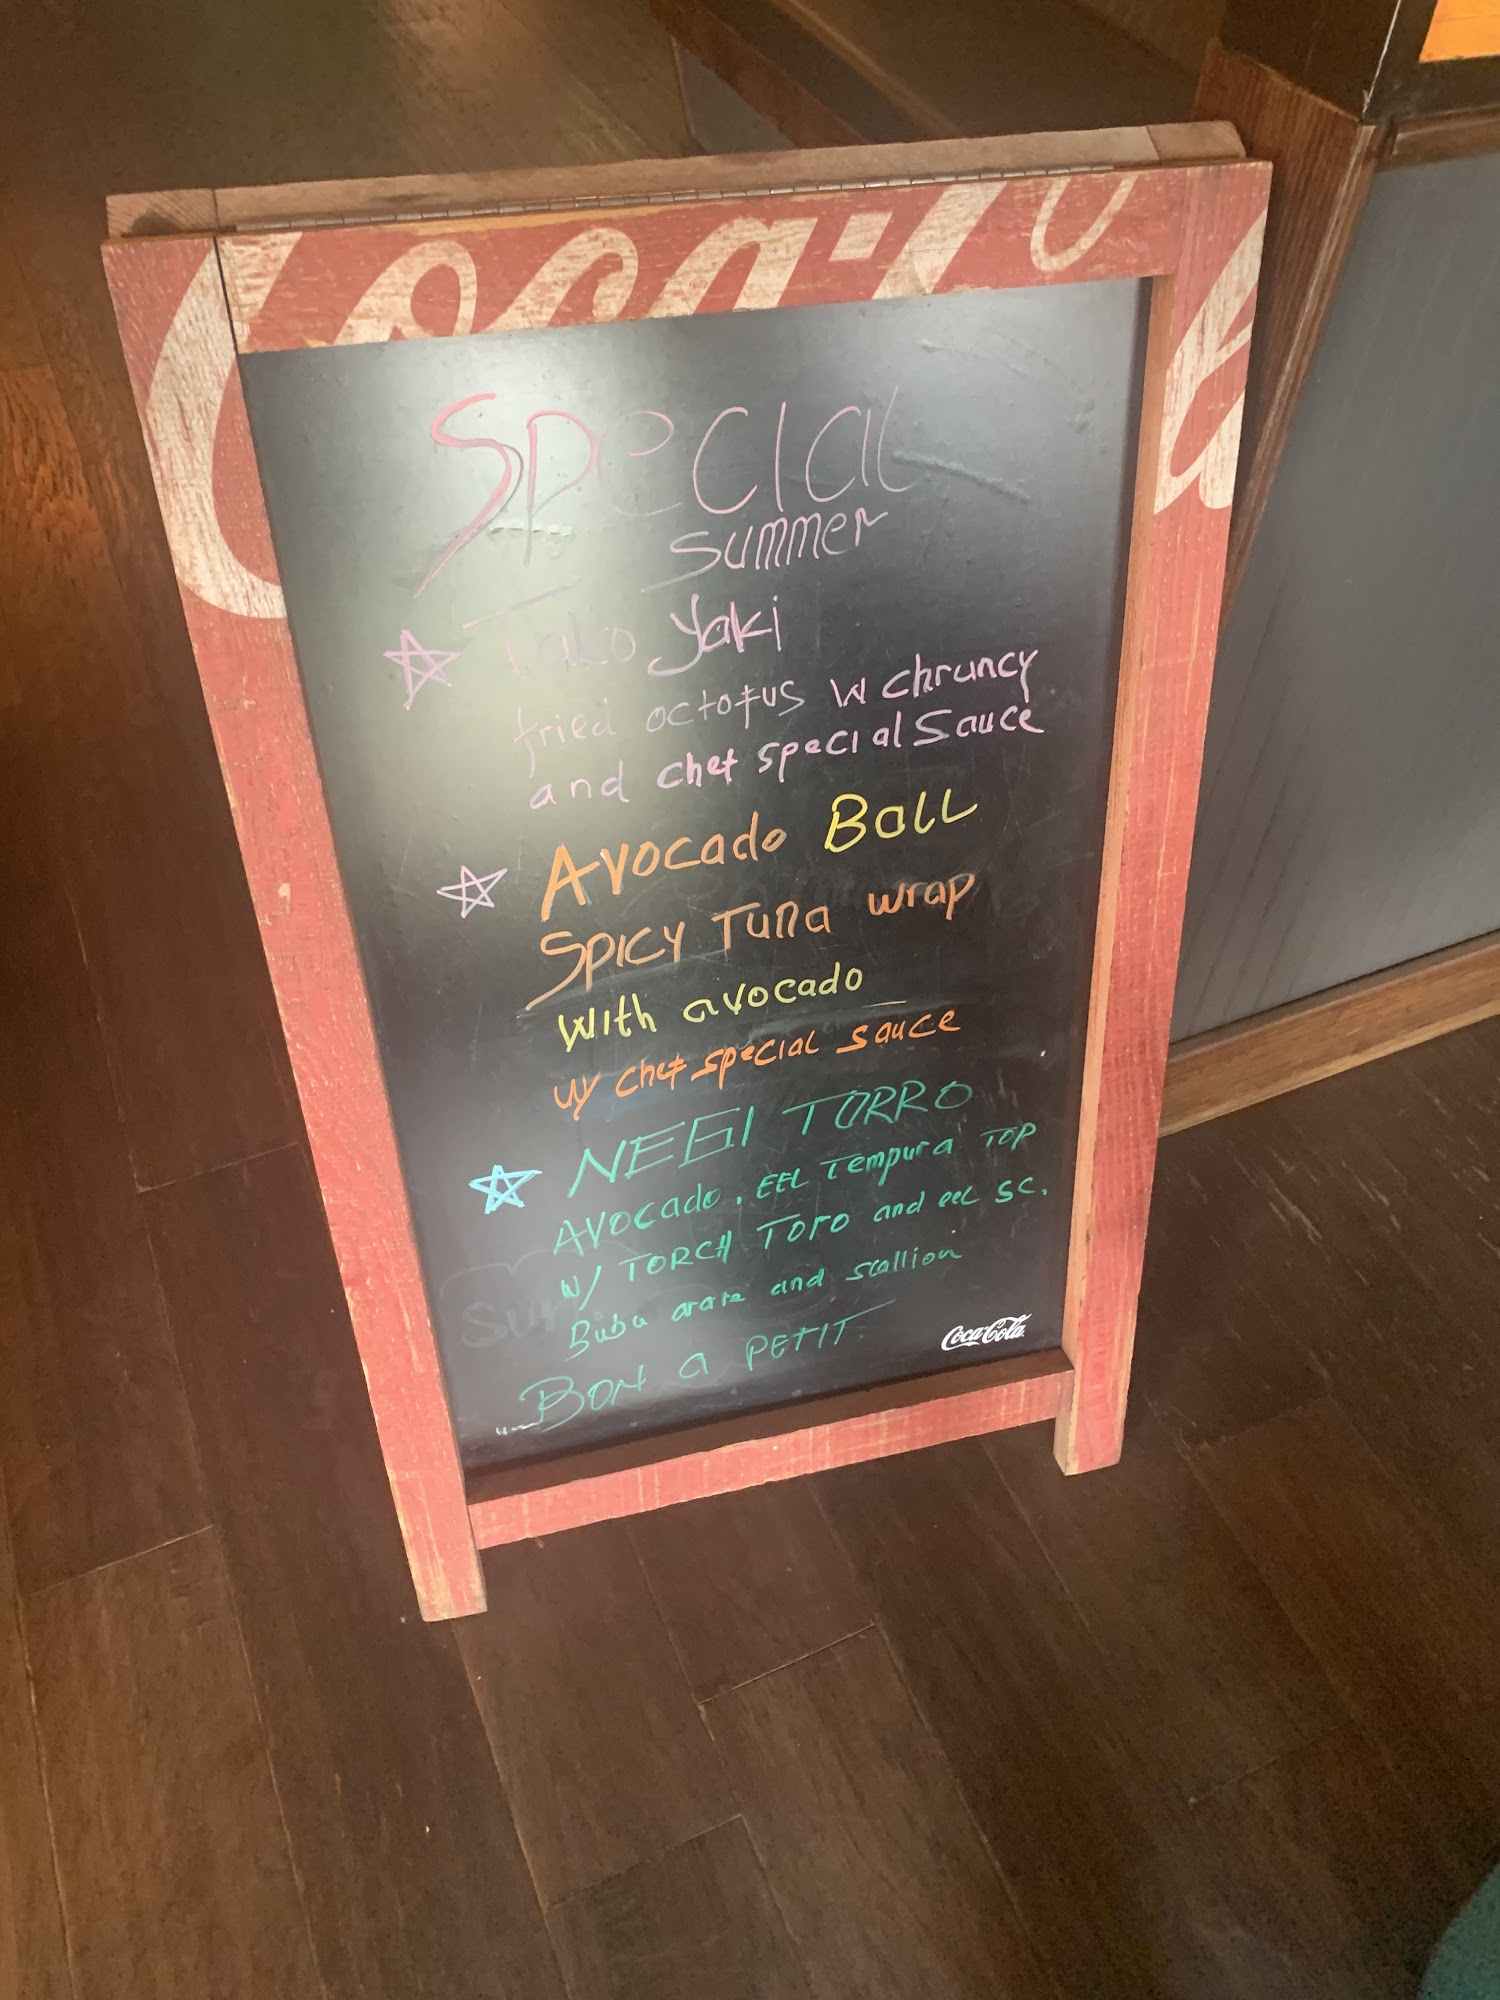 Coca-Co
Special
summer
Tako Yaki
fried octopus w chruncy
and chef special sauce
Avocado Ball
Spicy Tuna wrap
with avocado
w/ chef special sauce
NEGI TORRO
Avocado. EEL Tempura TOP
w/ TORCH Toro and eel sc.
Bubu arare and scallion
Bon a PETIT
Coca-Cola